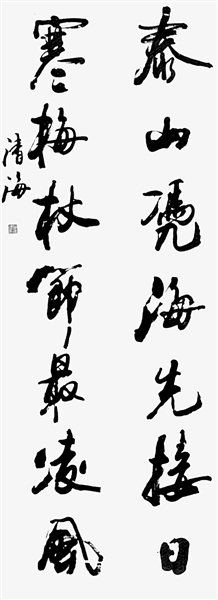 泰山凭海先接日
寒梅杖節最凌风
清海